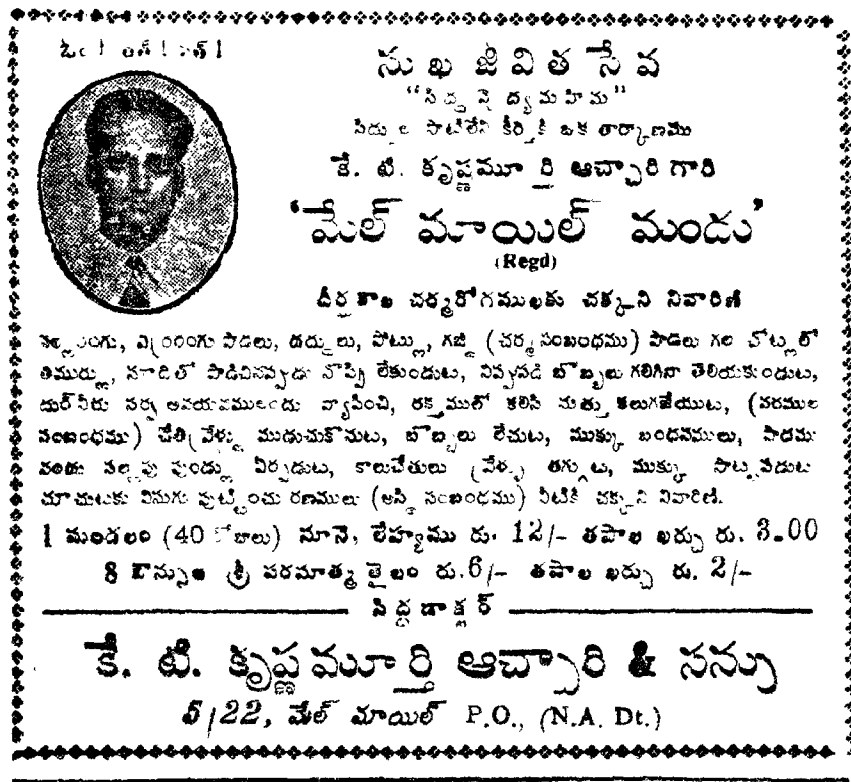 ఓం ! తత్ ! సత్ !
సుఖ జీవిత సేవ
"సిద్ధ వైద్య మహిమ"
సిద్ధుల సాటిలేని కీర్తికి ఒక తార్కాణము
కే. టి. కృష్ణమూర్తి ఆచ్చారి గారి
'మేల్ మాయిల్ మందు'
(Regd)
దీర్ఘకాల చర్మరోగములకు చక్కని నివారిణి
పొడలు, దద్దులు, పోట్లు, గజ్జి (చర్మ సంబంధము) పొడలు గల చోట్లలో
తిమురు, సూదితో పొడిచినప్పుడు నొప్పి లేకుండుట, నిప్పుపడి బొబ్బలు కలిగినా తెలియకుండుట,
దుర్నీరు సర్వ అవయవములందు వ్యాపించి, రక్తములో కలిసి కలుగజేయుట, (నరముల
సంబంధము) చేతివేళ్ళు ముడుచుకొనుట, బొబ్బలు లేచుట, ముక్కు బంధనములు, పాదము
నందు పుండ్లు ఏర్పడుట, కాలుచేతులు వేళ్ళు తగ్గుట, ముక్కు సాట్నపడుట
చూచుటకు విసుగు పుట్టించు రణములు (అస్థి సంబంధము) వీటికి చక్కని నివారిణి.
1 మండలం (40 రోజులు) నూనె, లేహ్యము రు. 12/- తపాల ఖర్చు రు. 3.00
8 ఔన్సుల శ్రీ పరమాత్మ తైలం రు.6/- తపాల ఖర్చు రు. 2/-
సిద్ధడాక్టర్
కే. టి. కృష్ణమూర్తి ఆచ్చారి & సన్సు
5/22, మేల్ మాయిల్ P.O., (N.A. Dt.)